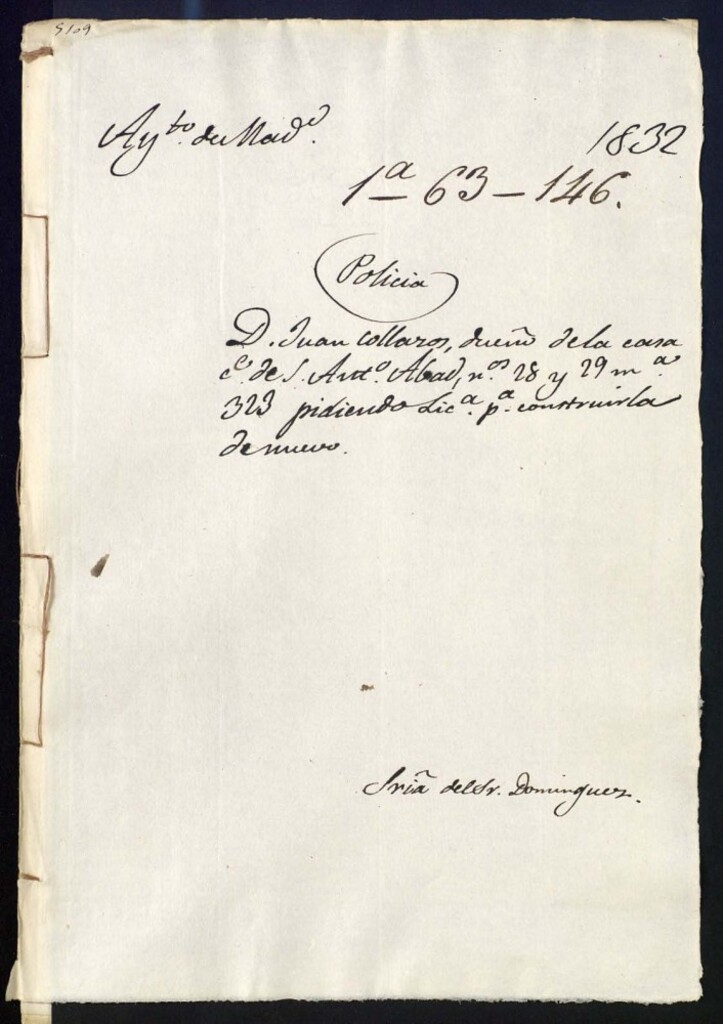 5109
Ayto. de Madd.
1832
1a 63-146.
Policia
D. Juan Collazos, dueño de la casa
Ce. de S. Anto. Abad, nos. 28 y 29 ma.
323 pidiendo Lica. pa. construirla
de nuevo.
Sria del Sr. Dominguez.